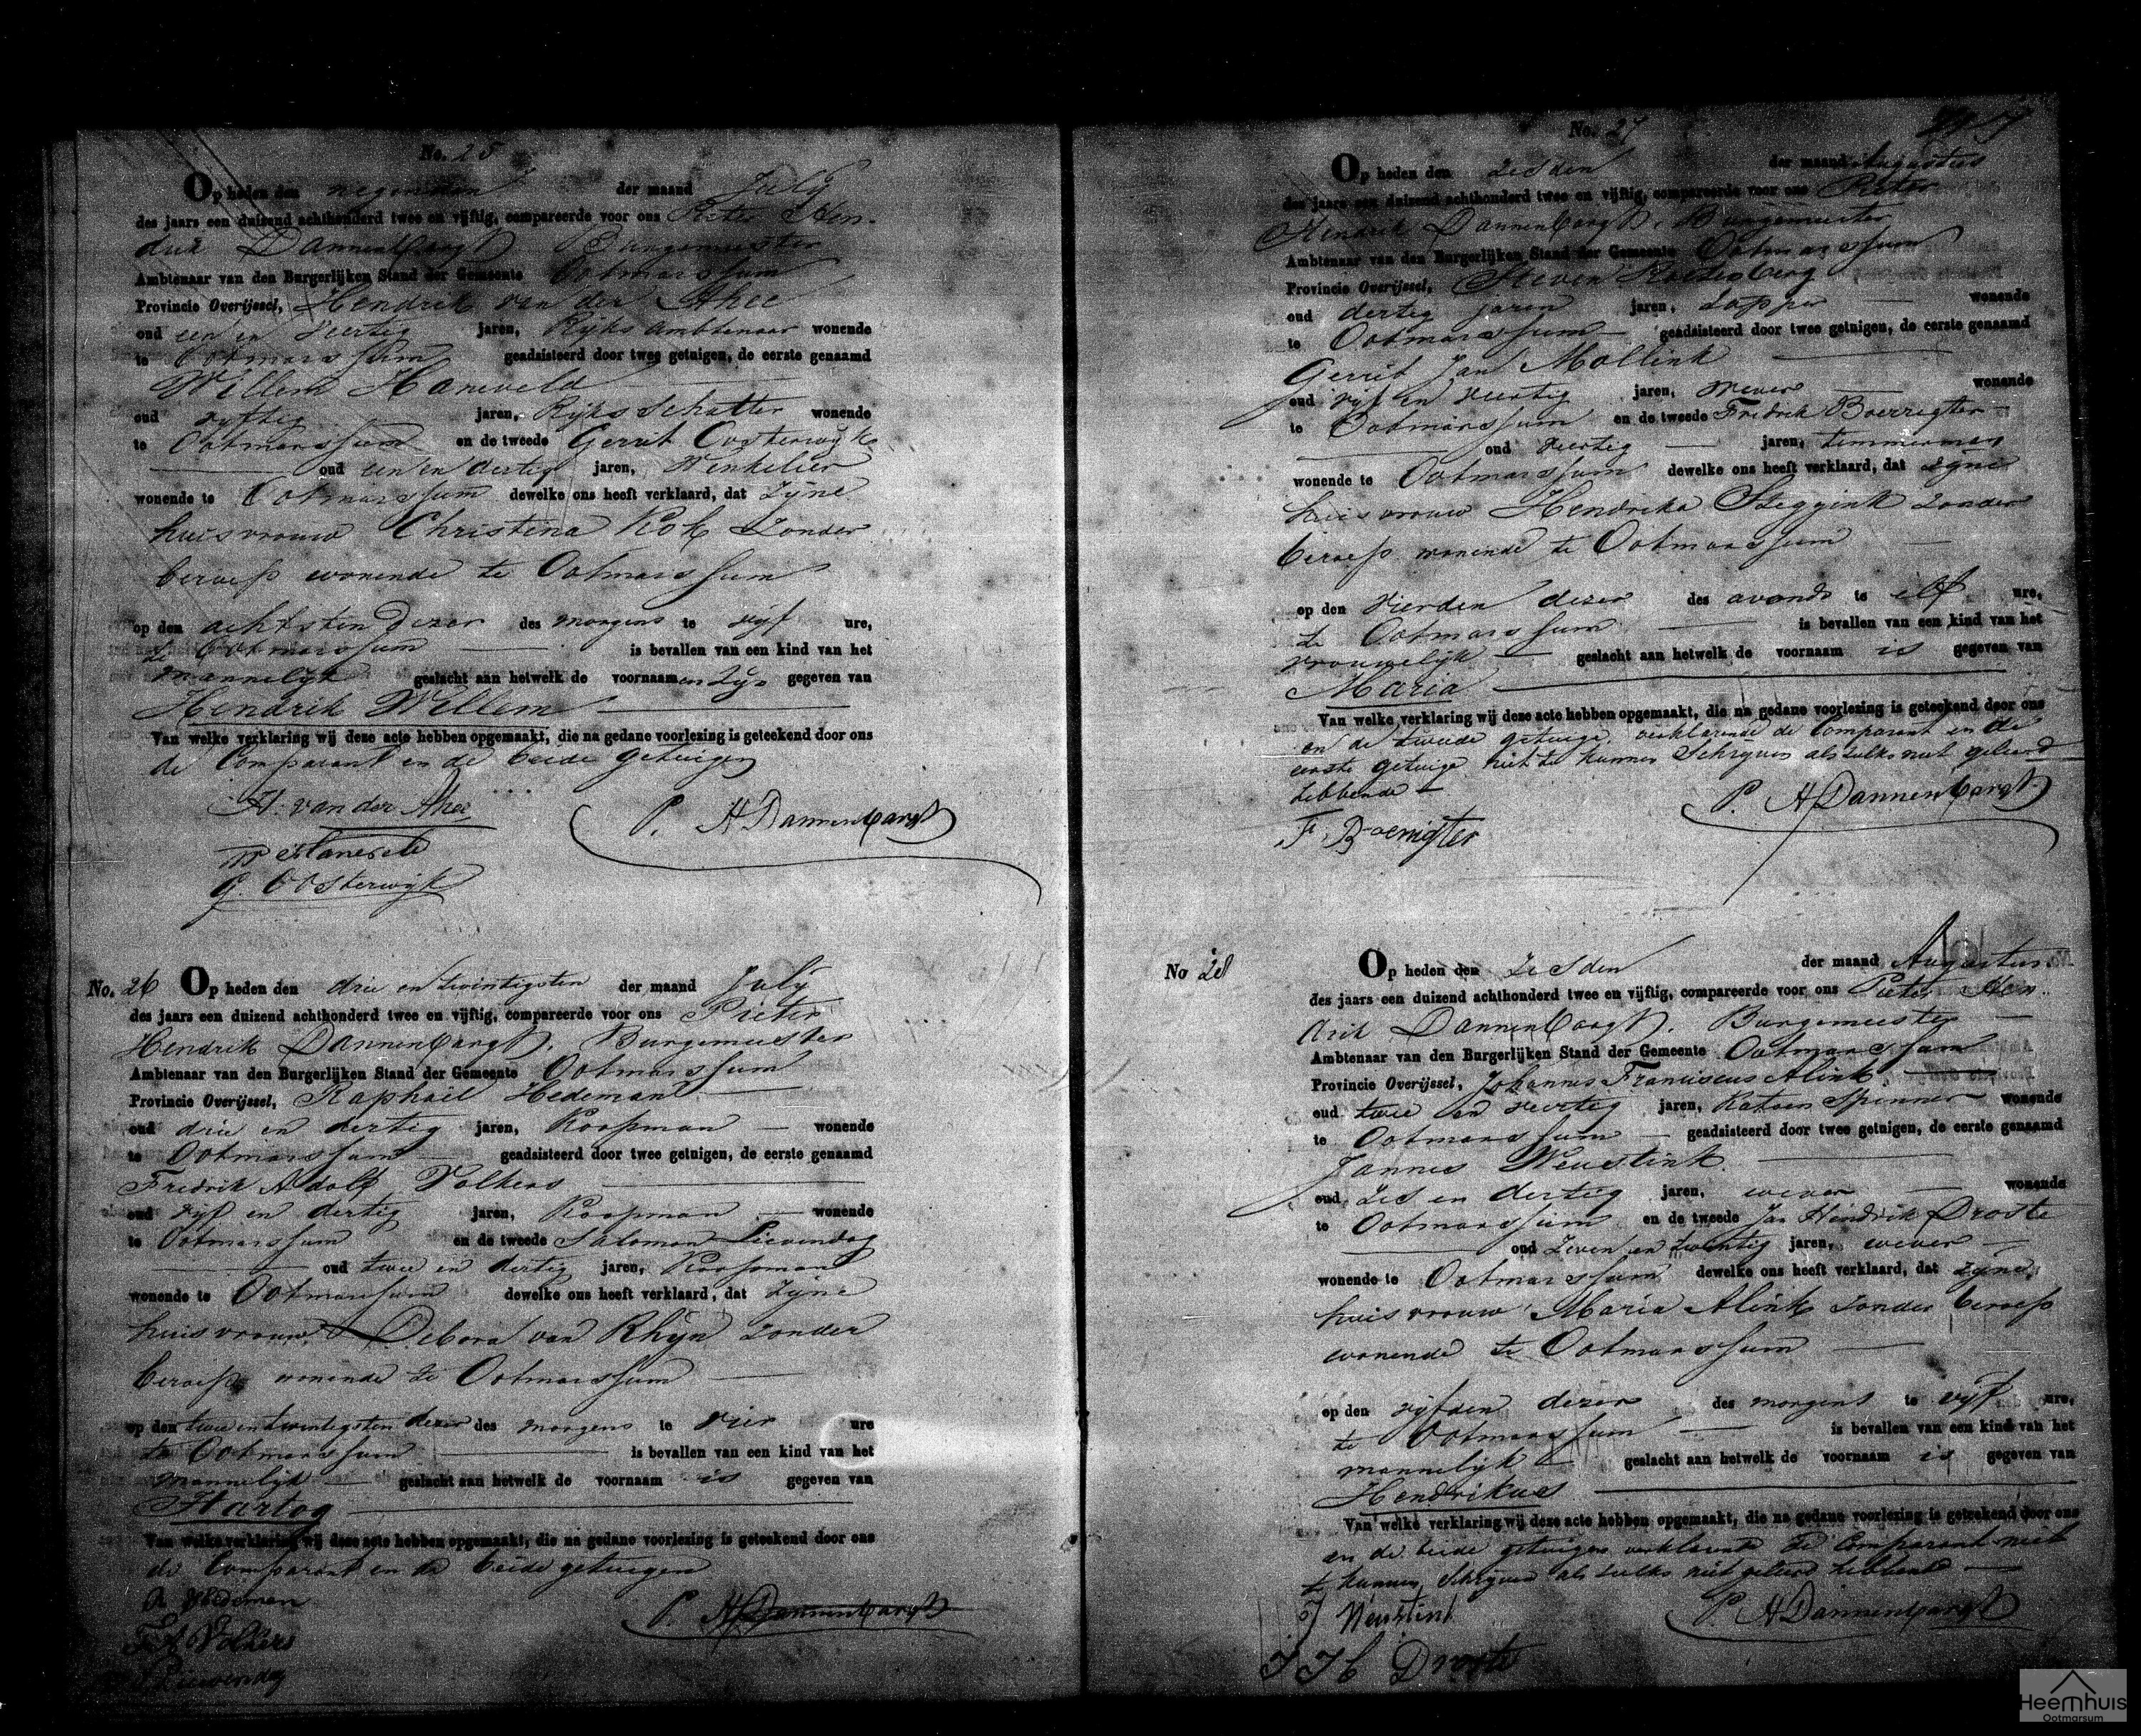 No. 25
Op heden den negenden der maand July
des jaars een duizend achthonderd twee en vijftig, compareerde voor ons Pieter Hen-
drik Dannenbargh, Burgemeester
Ambtenaar van den Burgerlijken Stand der Gemeente Ootmarssum
Provincie Overijssel, Hendrik van der Ahee
oud een en veertig jaren, Ryks ambtenaar wonende
te Ootmarssum geadsisteerd door twee getuigen, de eerste genaamd
Willem Haneveld
oud vyftig jaren, Ryks Schatter wonende
te Ootmarssum en de tweede Gerrit Oosterwyk
oud een en dertig jaren, Winkelier
wonende te Ootmarssum dewelke ons heeft verklaard, dat zyne
huisvrouw Christina Kok zonder
beroep wonende te Ootmarssum
op den achtsten dezer des morgens te vyf ure,
te Ootmarssum is bevallen van een kind van het
mannelyk geslacht aan hetwelk de voornaamen zyn gegeven van
Hendrik Willem
Van welke verklaring wij deze acte hebben opgemaakt, die na gedane voorlezing is geteekend door ons
de Comparant en de beide getuigen
H. van der Ahee
P. H Dannenbargh
W Haneveld
G. Oosterwyk
No. 26 Op heden den drie en twintigsten der maand July
des jaars een duizend achthonderd twee en vijftig, compareerde voor ons Pieter
Hendrik Dannenbargh, Burgemeester
Ambtenaar van den Burgerlijken Stand der Gemeente Ootmarssum
Provincie Overijssel, Raphaël Hedeman
oud drie en dertig jaren, Koopman wonende
te Ootmarssum geadsisteerd door twee getuigen, de eerste genaamd
Fredrik Adolf Volkers
oud vyf en dertig jaren, Koopman wonende
te Ootmarssum en de tweede Salomon Lievendag
oud twee en dertig jaren, Koopman
wonende te Ootmarssum dewelke ons heeft verklaard, dat zyne
huisvrouw Debora van Rhyn zonder
beroep wonende te Ootmarssum
op den twee en twintigsten dezer des morgens te vier ure
te Ootmarssum is bevallen van een kind van het
mannelyk geslacht aan hetwelk de voornaam is gegeven van
Hartog
Van welke verklaring wij deze acte hebben opgemaakt, die na gedane voorlezing is geteekend door ons
de Comparant en de beide getuigen
R Hedeman
P. H Dannenbargh
F A Volkers
Lievendag
No. 27
Op heden den zesden der maand Augustus
des jaars een duizend achthonderd twee en vijftig, compareerde voor ons Pieter
Hendrik Dannenbargh, Burgemeester
Ambtenaar van den Burgerlijken Stand der Gemeente Ootmarssum
Provincie Overijssel, Steven
oud dertig jaren jaren, wonende
te Ootmarssum geadsisteerd door twee getuigen, de eerste genaamd
Gerrit Jan Mollink
oud vyf en veertig jaren, wever wonende
te Ootmarssum en de tweede Fredrik Boerrigter
oud veertig jaren, timmerman
wonende te Ootmarssum dewelke ons heeft verklaard, dat zyne
huisvrouw Hendrika Steggink zonder
beroep wonende te Ootmarssum
op den vierden dezer des avonds te elf ure,
te Ootmarssum is bevallen van een kind van het
vrouwelyk geslacht aan hetwelk de voornaam is gegeven van
Maria
Van welke verklaring wij deze acte hebben opgemaakt, die na gedane voorlezing is geteekend door ons
en de tweede getuige, verklarende de Comparant en de
eerste getuige niet te kunnen Schryven als zulks niet geleerd
hebbende
P. H Dannenbargh
F. Boerrigter
No 28 Op heden den zesden der maand Augustus
des jaars een duizend achthonderd twee en vijftig, compareerde voor ons Pieter Hen-
drik Dannenbargh, Burgemeester
Ambtenaar van den Burgerlijken Stand der Gemeente Ootmarssum
Provincie Overijssel, Johannes Franciscus Alink
oud twee en veertig jaren, Katoen Spinner wonende
te Ootmarssum geadsisteerd door twee getuigen, de eerste genaamd
Jannes Weustink
oud zes en dertig jaren, wever wonende
te Ootmarssum en de tweede Jan Hendrik Droste
oud zeven en twintig jaren, wever
wonende te Ootmarssum dewelke ons heeft verklaard, dat zyne
huisvrouw Maria Alink zonder beroep
wonende te Ootmarssum
op den vyfden dezer des morgens te vyf ure,
te Ootmarssum is bevallen van een kind van het
mannelyk geslacht aan hetwelk de voornaam is gegeven van
Hendrikus
Van welke verklaring wij deze acte hebben opgemaakt, die na gedane voorlezing is geteekend door ons
en de beide getuigen verklarende de Comparant niet
te kunnen Schryven als zulks niet geleerd hebbende
J Weustink
P. H Dannenbargh
J H Droste
Heemhuis
Ootmarsum